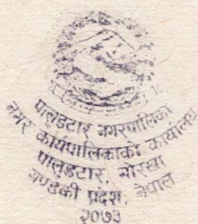 पालुङटार नगरपालिका
नगर कार्यपालिकाको कार्यालय
पालुङटार, गोरखा
गण्डकी प्रदेश, नेपाल
२०७३